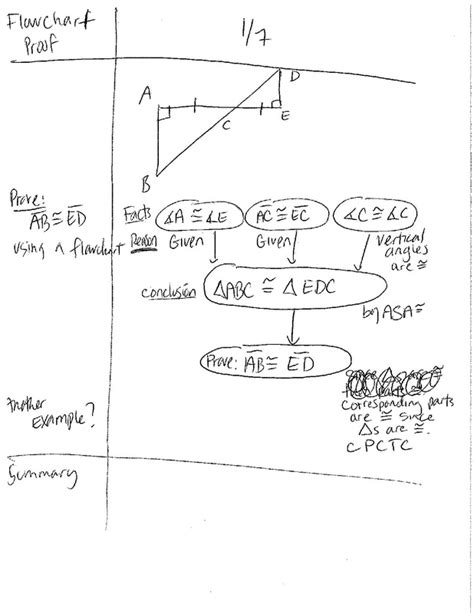 Flowchart
Proof
1/7
D
A
C
E
B
Prove:
AB ≅ ED
using a flowchart
Facts
∡A ≅ ∡E
AC ≅ EC
∡C ≅ ∡C
Reason
Given
Given
vertical
angles
are ≅
conclusion
△ABC ≅ △EDC
by ASA ≅
Prove: AB ≅ ED
corresponding parts
are ≅ since
△s are ≅.
CPCTC
Another
Example?
Summary